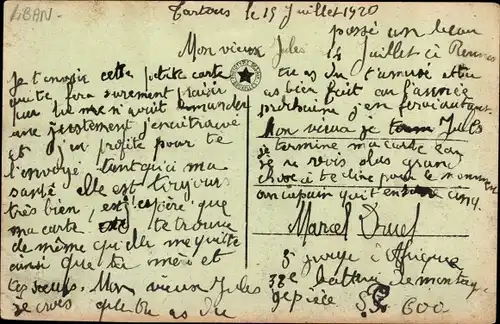 LIBAN-
Tartous le 15 Juillet 1920
Mon vieux Jules
Je t'envoie cette petite carte
qui te fera surement plaisir
car tu me m'avait demander
une justement j'en ai trouvé
et j'en profite pour te
l'envoyé tant qu'à ma
santé elle est toujours
très bien, espère que
ma carte te trouve
de même qu'elle me quitte
ainsi que ta mère et
tes soeurs. Mon vieux Jules
je crois que tu as du
passé un beau
14 Juillet à Rennes
tu as du t'amusé
as bien fait car l'année
prochaine j'en ferai autant.
Mon vieux Jules
je termine ma carte car
je ne vois plus grand
chose à te dire pour le moment
un copain qui t'en cinq.
Marcel Druel
d'Afrique
batterie de montagne
pièce
S P 600